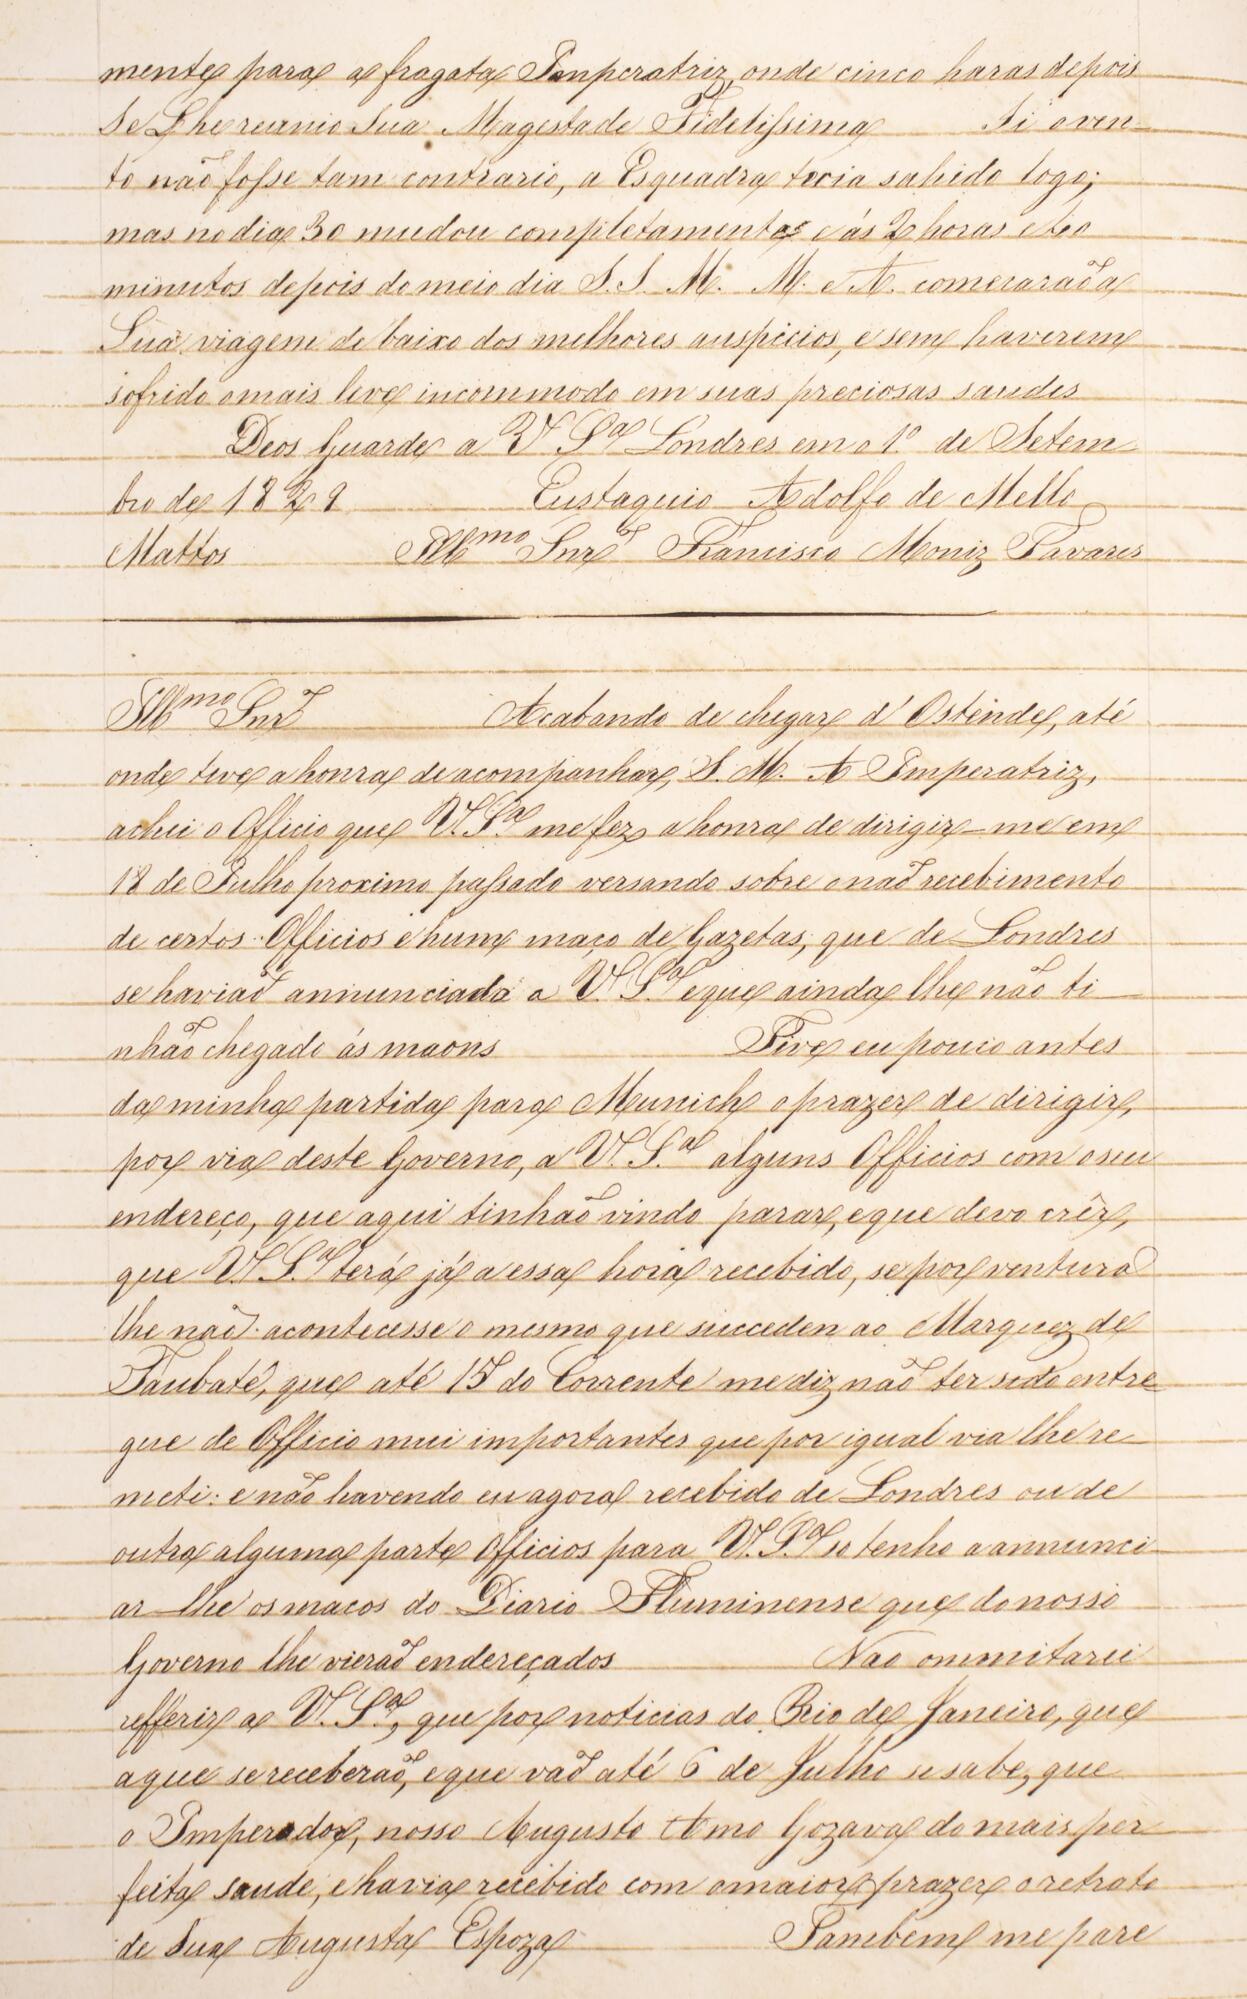 mente para a fragata Imperatriz, onde cinco haras depois
Se Lhe reunio Sua Magestade Fidelissima Si o ven-
to não fosse tam contrario, a Esquadra teria sahido logo;
mas no dia 30 mudou completamente e ás 2 horas e
minutos depois do meio dia S.S. M. M. e A. comerarão a
Sua viagem de baixo dos melhores auspicios, e sem haverem
sofrido o mais leve incommodo em suas preciosas saudes
Deos Guarde a V Sª Londres em o 1º de Setem-
bro de 1829 Eustaquio Adolfo de Mello
Mattos Illmo Snr Francisco Moniz Tavares
Illmo Snr Acabando de chegar d'Ostende, até
onde tive a honra de acompanhar, S. M. A Imperatriz,
achei o Officio que V. Sª me fez a honra de dirigir-me em
18 de Julho proximo passado versando sobre o não recebimento
de certos Officios e hum maço de Gazetas, que de Londres
se havião annunciado a V. Sª e que ainda lhe não ti-
nhão chegado ás maons Tive eu pouco antes
da minha partida para Munich o prazer de dirigir,
por via deste Governo, a V. Sª alguns Officios com o seu
endereço, que aqui tinhão vindo parar, e que devo crêr,
que V. Sª terá já a essa hora recebido, se por ventura
lhe não acontecesse o mesmo que succeden ao Marquez de
Taubaté, que até 15 do Corrente me diz não ter sido entre-
gue de Officio mui importantes que por igual via lhe re-
meti: e não havendo eu agora recebido de Londres ou de
outra alguma parte Officios para V. Sª so tenho a annunci-
ar-lhe os macos do Diario Fluminense que do nosso
Governo lhe vierão endereçados Nao ommitarei
refferir a V. Sª, que por noticias do Rio de Janeiro, que
a que se receberão, e que vão até 6 de Julho se sabe, que
o Imperador, nosso Augusto Amo Gozava do mais per
feita saude, e havia recebido com o maior prazer o retrato
de Sua Augusta Espoza Tambem me pare